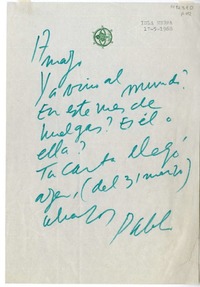 ISLA NEGRA
17-5-1968
17 mayo
Ya vino al mundo?
En este mes de
huelgas? Es él o
ella?
Tu carta llegó
ayer, (del 31 marzo)
abrazos
Pablo